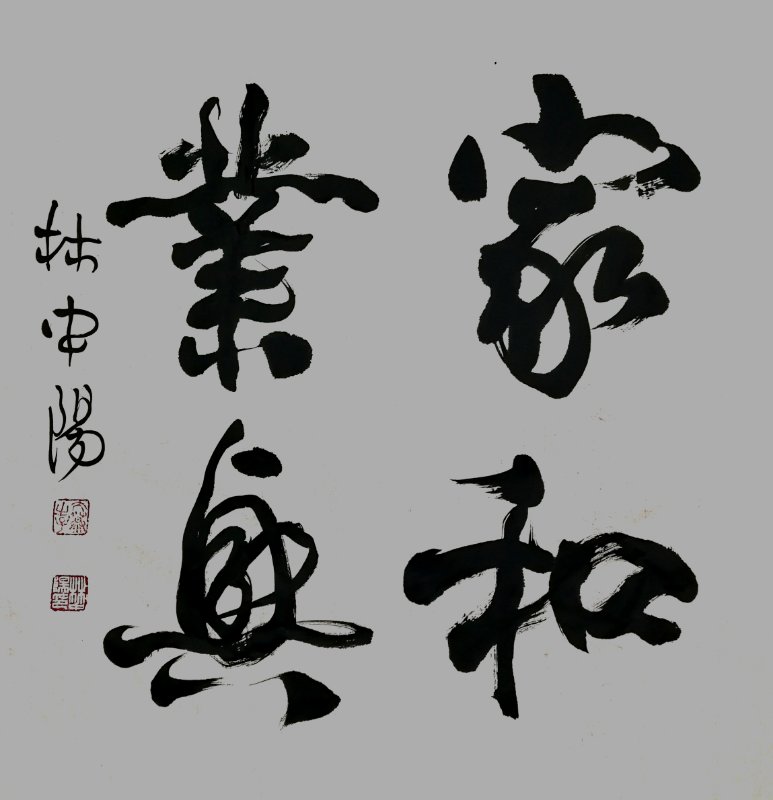 家和
業興
林中陽